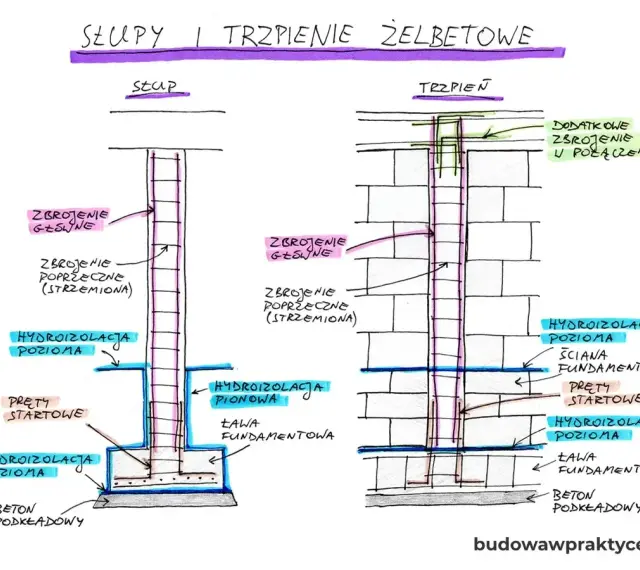 SŁUPY I TRZPIENIE ŻELBETOWE
SŁUP
ZBROJENIE
GŁÓWNE
ZBROJENIE
POPRZECZNE
(STRZEMIONA)
HYDROIZOLACJA
POZIOMA
HYDROIZOLACJA
PIONOWA
PRĘTY
STARTOWE
ŁAWA
FUNDAMENTOWA
DROIZOLACJA
ZIOMA
BETON
PODKŁADOWY
TRZPIEŃ
DODATKOWE
ZBROJENIE
W POŁĄCZEN
ZBROJENIE
GŁÓWNE
ZBROJENIE
POPRZECZNE
(STRZEMIONA)
HYDROIZOLA
POZIOMA
ŚCIANA
FUNDAMENT
PRĘTY
STARTOWE
HYDROIZOLA
POZIOMA
ŁAWA
FUNDAMEN
BETON
PODKŁADOWY
budowawpraktyce